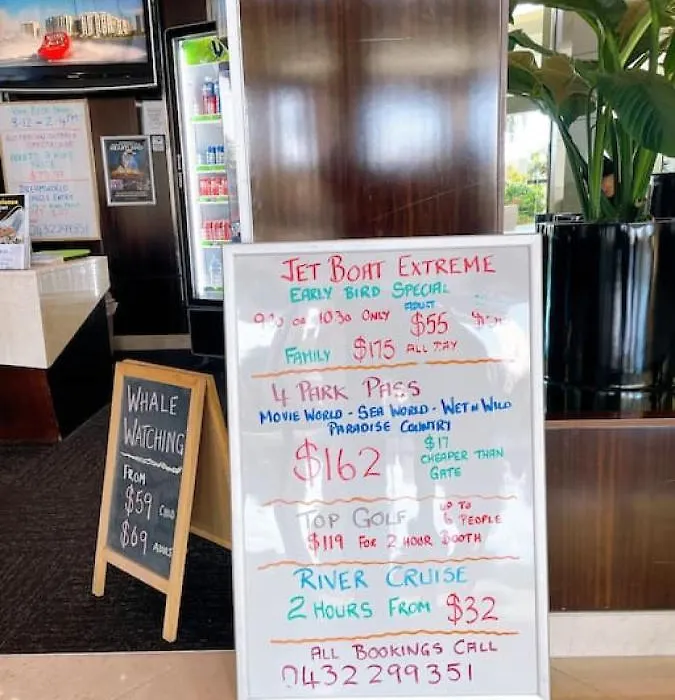 JET BOAT EXTREME
EARLY BIRD SPECIAL
ADULT
10:30 ONLY $55
FAMILY $175 ALL DAY
4 PARK PASS
MOVIE WORLD - SEA WORLD - WET N WILD
PARADISE COUNTRY
$162
$17
CHEAPER THAN
GATE
TOP GOLF UP TO
6 PEOPLE
$119 FOR 2 HOUR BOOTH
RIVER CRUISE
2 HOURS FROM $32
ALL BOOKINGS CALL
0432299351
WHALE
WATCHING
FROM
$59 CHILD
$69 ADULT
8-12 - 2-4PM
DREAMWORLD
ENTRY
0432299351